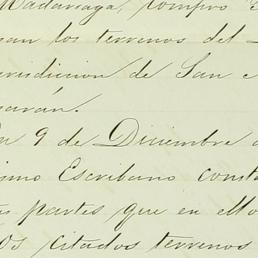 Madariaga, compro
san los terrenos del
risdiccion de San
parán.
9 de Diciembre
ismo Escribano consta
partes que en
os citados terrenos